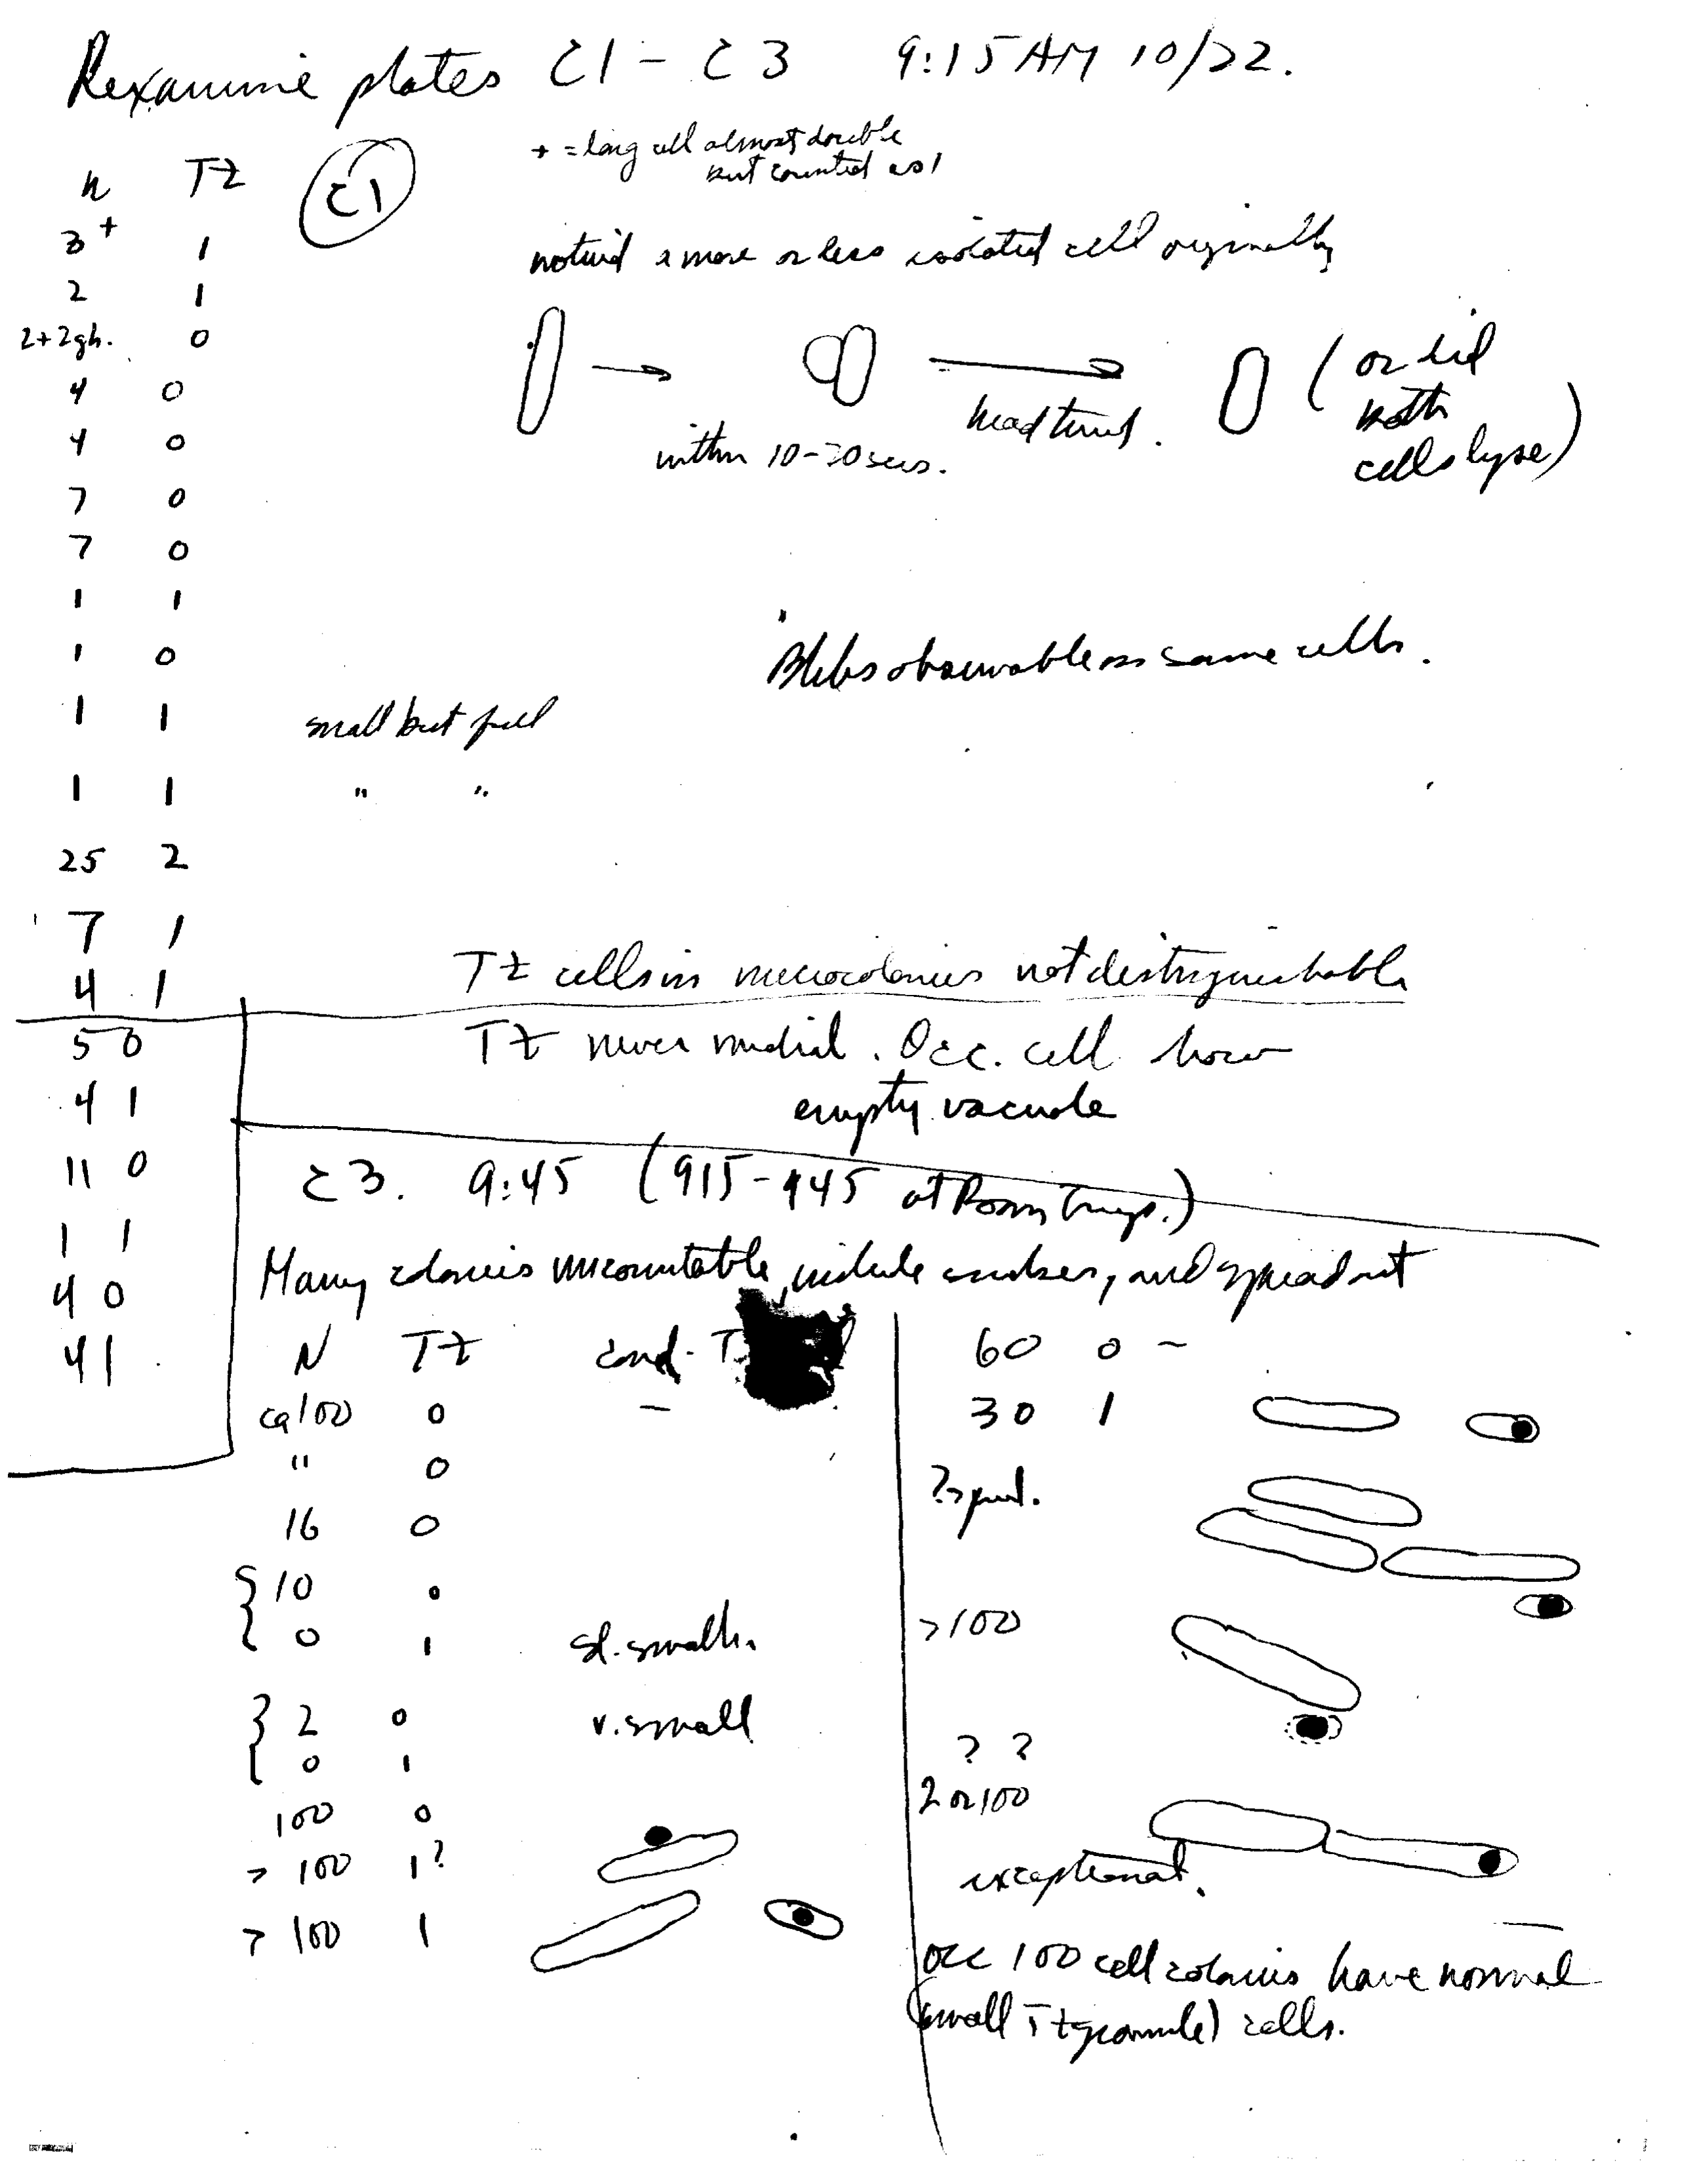 Rexamine plates C1 - C3 9:15 AM 10/22.
+ = long cell almost double
but counted as 1
n Tz
C1
3+ 1
2 1
2+2gh. 0
4 0
4 0
7 0
7 0
1 1
1 0
1 1 small but full
1 1 " "
25 2
7 1
4 1
5 0
4 1
11 0
1 1
4 0
4 1
noticed a more or less isolated cell originally
within 10-20 secs.
head turned.
(or did
both
cells lyse)
Blebs observable on some cells.
Tz cells in microcolonies not distinguishable
Tz never medial. Occ. cell how
empty vacuole
C3. 9:45 (915-945 at Room Temp.)
Many colonies uncountable, include snakes, and spread out
N Tz cond. T
ca 100 0 -
" 0
16 0
{10 0
0 1 sl. small.
{2 0 v. small
0 1
100 0
> 100 1?
> 100 1
60 0 -
30 1
? spread.
>100
? ?
2 or 100
exceptional.
Occ 100 cell colonies have normal
(small Tz granule) cells.